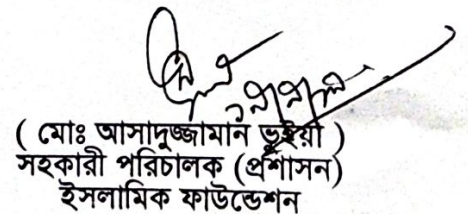 ( মোঃ আসাদুজ্জামান ভূইয়া )
সহকারী পরিচালক (প্রশাসন)
ইসলামিক ফাউন্ডেশন